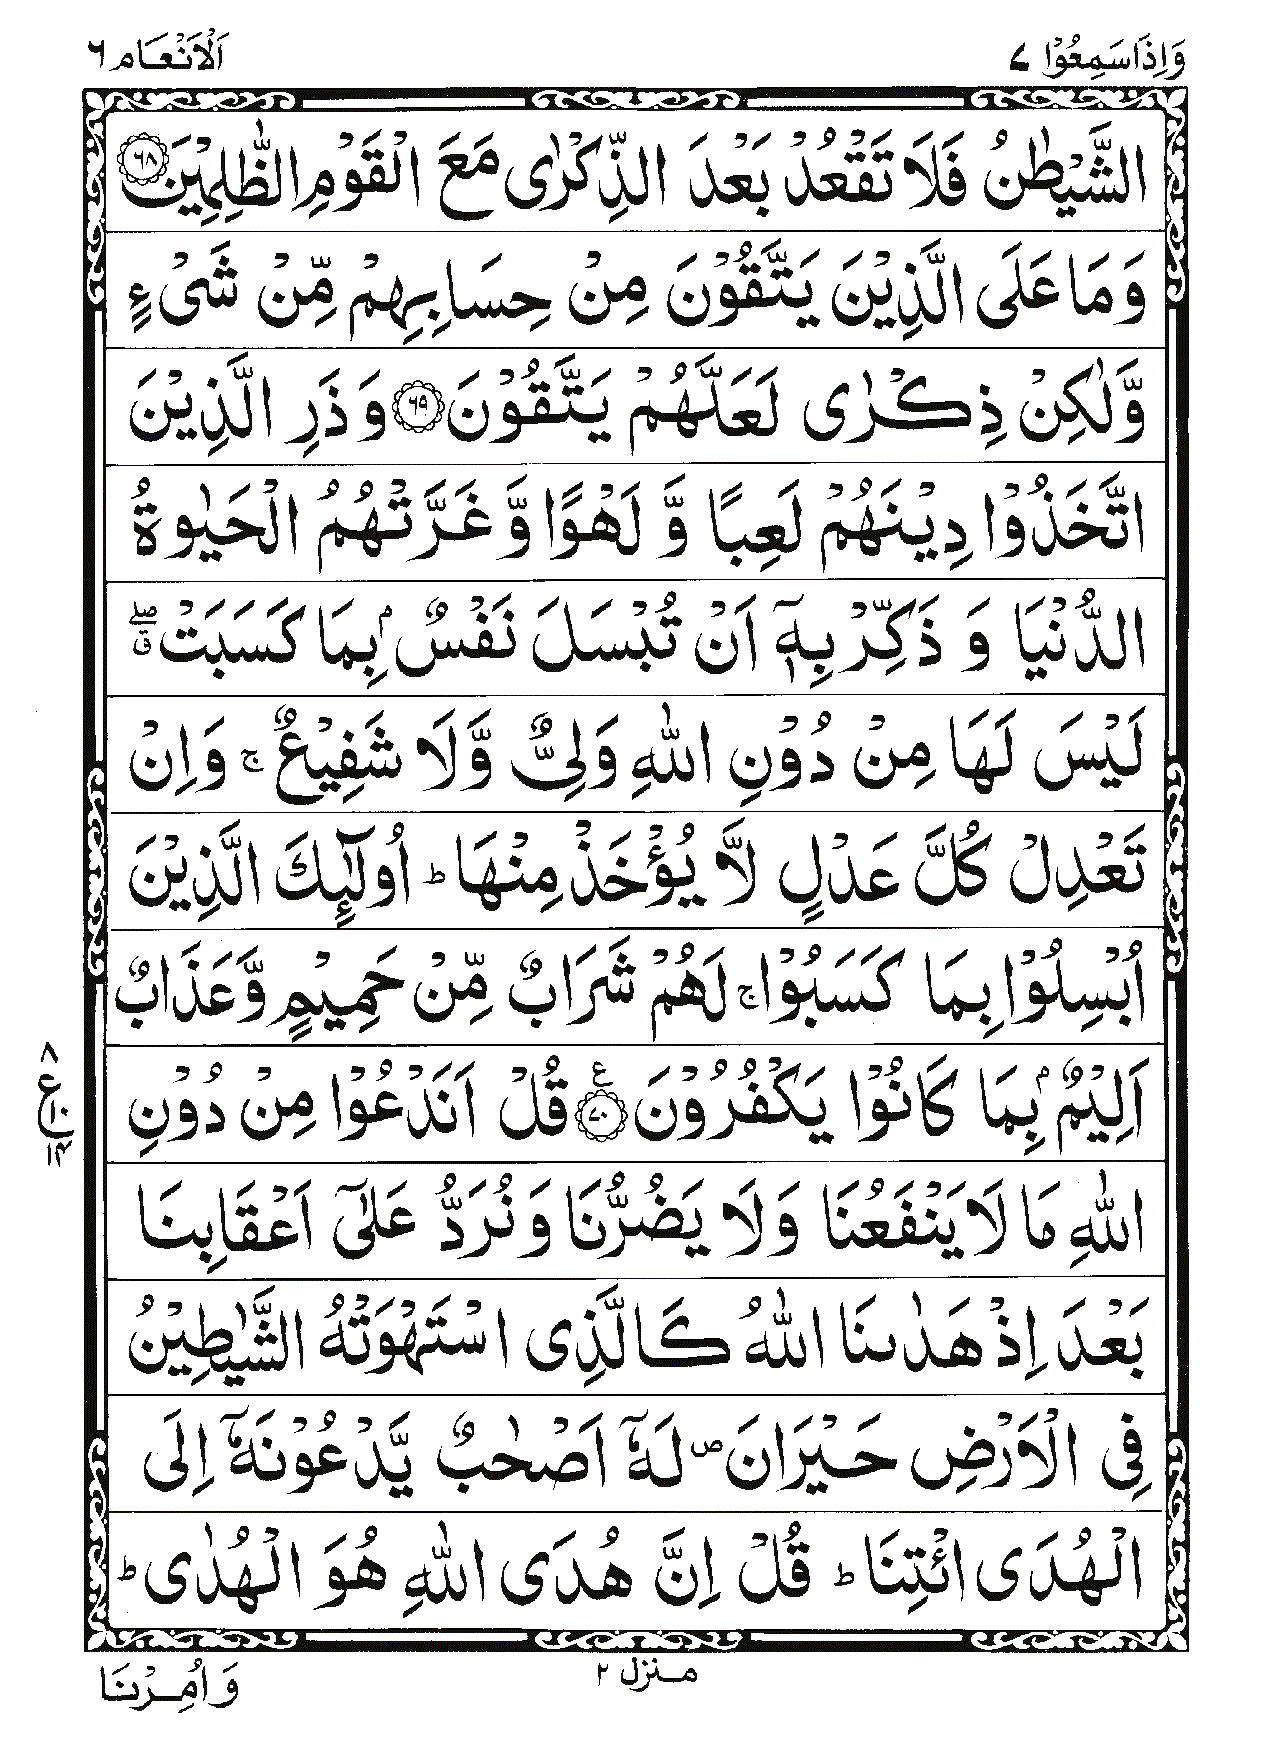 وَاِذَاسَمِعُوْا ٧
اَلْاَنْعَام ٦
الشَّيْطٰنُ فَلَا تَقْعُدْ بَعْدَ الذِّكْرٰى مَعَ الْقَوْمِ الظّٰلِمِيْنَ ۝٦٨
وَمَا عَلَى الَّذِيْنَ يَتَّقُوْنَ مِنْ حِسَابِهِمْ مِّنْ شَىْءٍ
وَّلٰكِنْ ذِكْرٰى لَعَلَّهُمْ يَتَّقُوْنَ ۝٦٩ وَ ذَرِ الَّذِيْنَ
اتَّخَذُوْا دِيْنَهُمْ لَعِبًا وَّ لَهْوًا وَّ غَرَّتْهُمُ الْحَيٰوةُ
الدُّنْيَا وَ ذَكِّرْ بِهٖۤ اَنْ تُبْسَلَ نَفْسٌۢ بِمَا كَسَبَتْ ۖق
لَيْسَ لَهَا مِنْ دُوْنِ اللّٰهِ وَلِىٌّ وَّلَا شَفِيْعٌ ۚ وَاِنْ
تَعْدِلْ كُلَّ عَدْلٍ لَّا يُؤْخَذْ مِنْهَا ؕ اُولٰٓئِكَ الَّذِيْنَ
اُبْسِلُوْا بِمَا كَسَبُوْا ۚ لَهُمْ شَرَابٌ مِّنْ حَمِيْمٍ وَّعَذَابٌ
اَلِيْمٌۢ بِمَا كَانُوْا يَكْفُرُوْنَ ۝٧٠ ع قُلْ اَنَدْعُوْا مِنْ دُوْنِ
٨ ع ١٠ ١٤
اللّٰهِ مَا لَا يَنْفَعُنَا وَلَا يَضُرُّنَا وَ نُرَدُّ عَلٰٓى اَعْقَابِنَا
بَعْدَ اِذْ هَدٰىنَا اللّٰهُ كَالَّذِى اسْتَهْوَتْهُ الشَّيٰطِيْنُ
فِى الْاَرْضِ حَيْرَانَ ص لَهٗۤ اَصْحٰبٌ يَّدْعُوْنَهٗۤ اِلَى
الْهُدَى ائْتِنَا ؕ قُلْ اِنَّ هُدَى اللّٰهِ هُوَ الْهُدٰى ؕ
منزل ٢
وَاُمِرْنَا